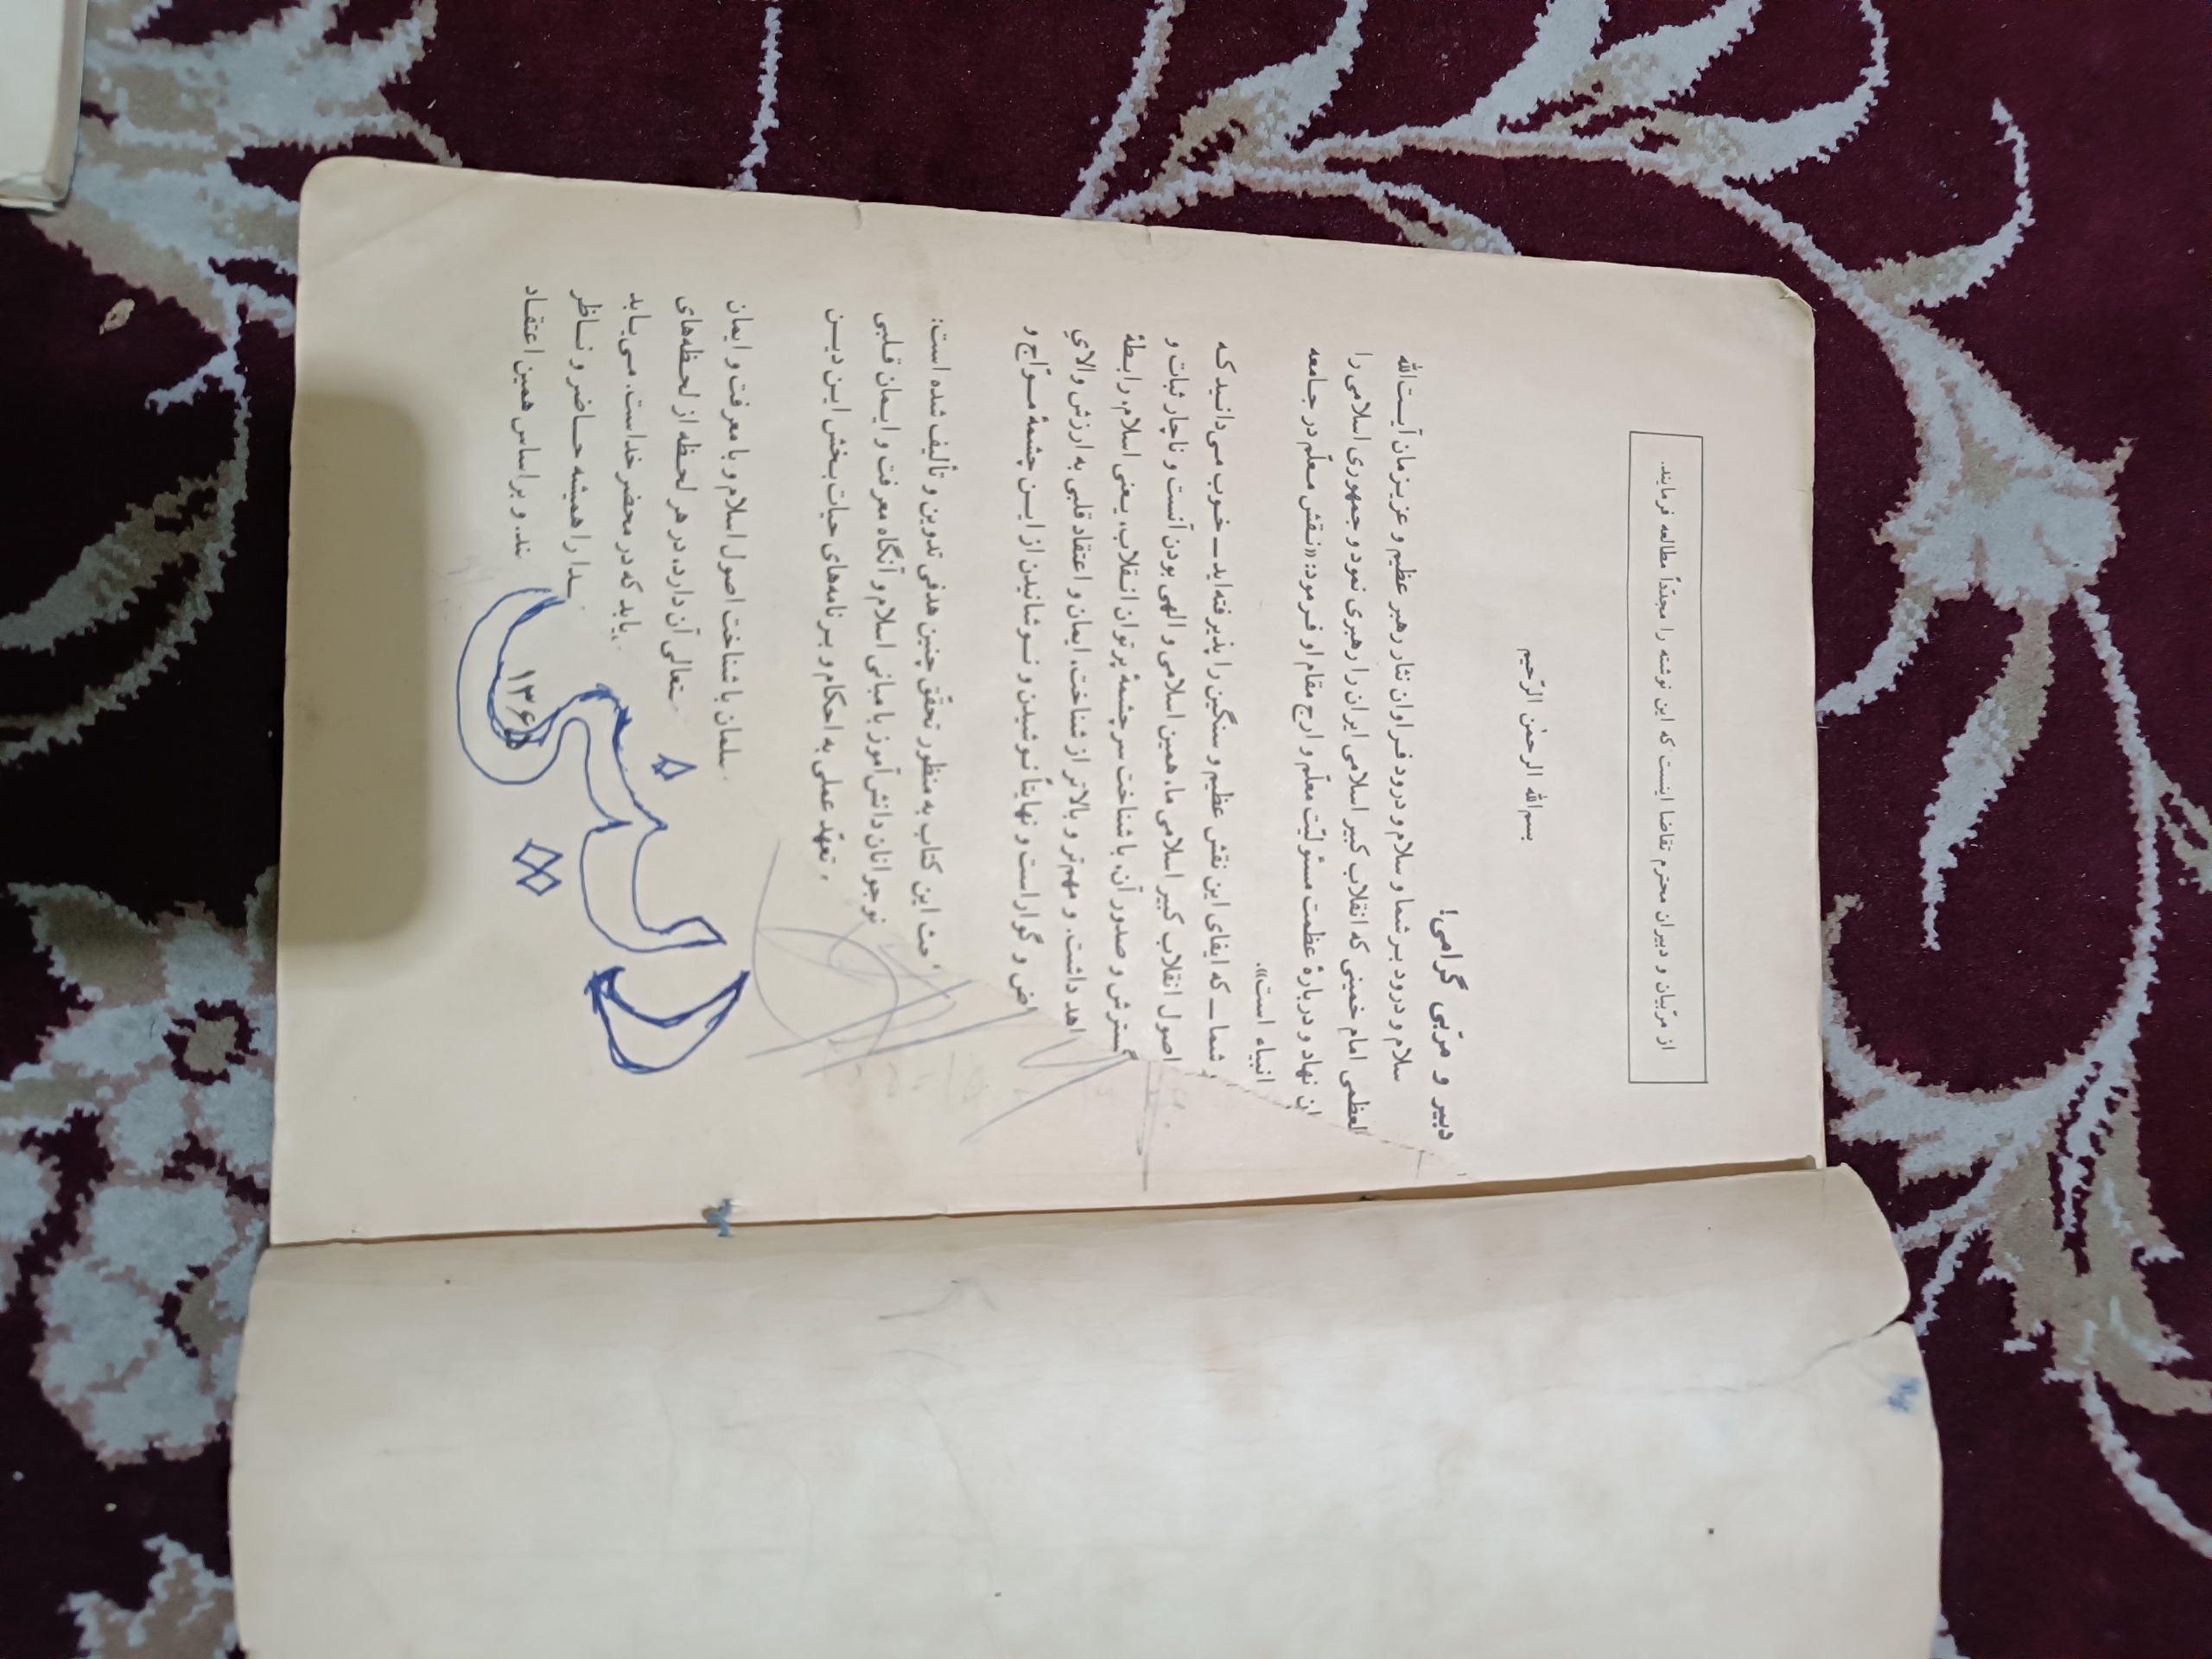 از مربّیان و دبیران محترم تقاضا اینست که این نوشته را مجدّداً مطالعه فرمایند.
بسم‌الله الرحمن الرّحیم
دبیر و مربّی گرامی!
سلام و درود بر شما و سلام و درود فراوان نثار رهبر عظیم و عزیزمان آیت‌الله
العظمی امام خمینی که انقلاب کبیر اسلامی ایران را رهبری نمود و جمهوری اسلامی را
نهاد و دربارهٔ عظمت مسئولیّت معلّم و ارج مقام او فرمود: «نقش معلّم در جامعه
انبیاء است».
شما ـ که ایفای این نقش عظیم و سنگین را پذیرفته‌اید ـ خوب می‌دانید که
اصول انقلاب کبیر اسلامی ما، همین اسلامی و الهی بودن آنست و ناچار ثبات و
گسترش و صدور آن، با شناخت سرچشمهٔ پرتوان انقلاب، یعنی اسلام، رابطهٔ
داشت. و مهم‌تر و بالاتر از شناخت، ایمان و اعتقاد قلبی به ارزش والای
و گواراست و نهایتاً نوشیدن و نوشانیدن از این چشمهٔ موّاج و
این کتاب به منظور تحقّق چنین هدفی تدوین و تألیف شده است:
نوجوانان دانش‌آموز با مبانی اسلام و آنگاه معرفت و ایمان قلبی
تعهّد عملی به احکام و برنامه‌های حیات‌بخش این دین
با شناخت اصول اسلام و با معرفت و ایمان
آن دارد، در هر لحظه از لحظه‌های
که در محضر خداست. می‌یابد
را همیشه حاضر و ناظر
و براساس همین اعتقاد
۱۳۶۵